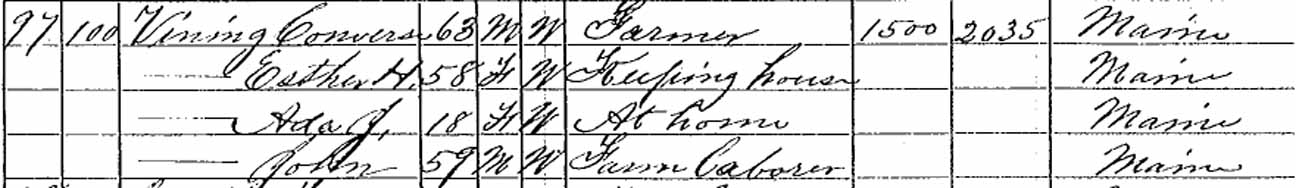 97 100 Vining Convers 63 M W Farmer 1500 2035 Maine
— Esther H. 58 F W Keeping house Maine
— Ada J. 18 F W At home Maine
— John 59 M W Farm Laborer Maine